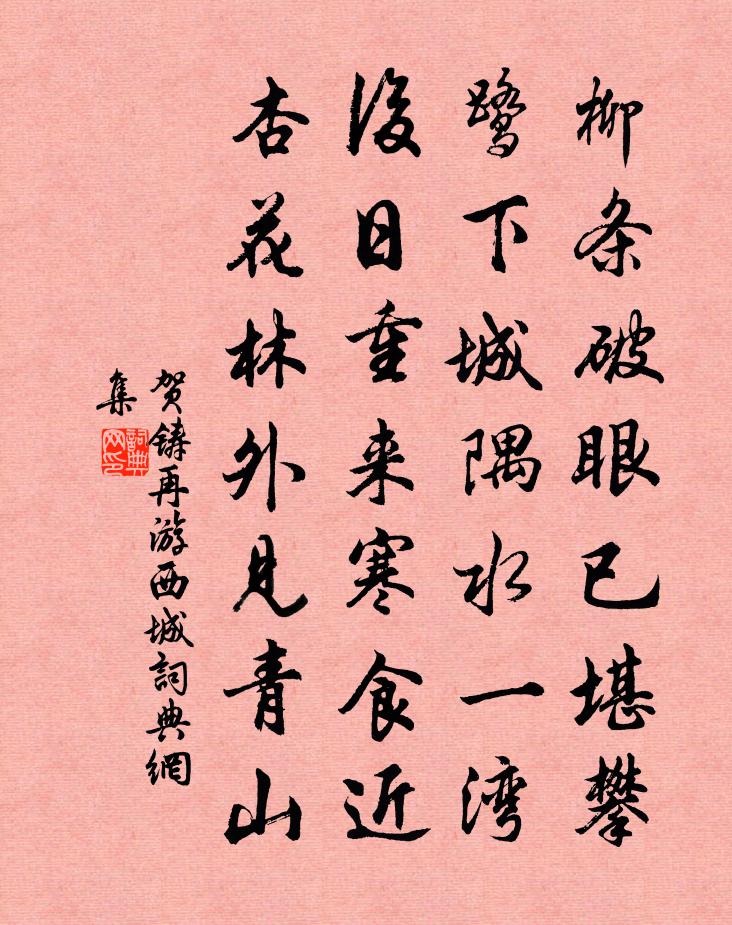 柳条破眼已堪攀
鹭下城隅水一湾
后日重来寒食近
杏花林外见青山
贺铸再游西城詞典網
集
詞典网印